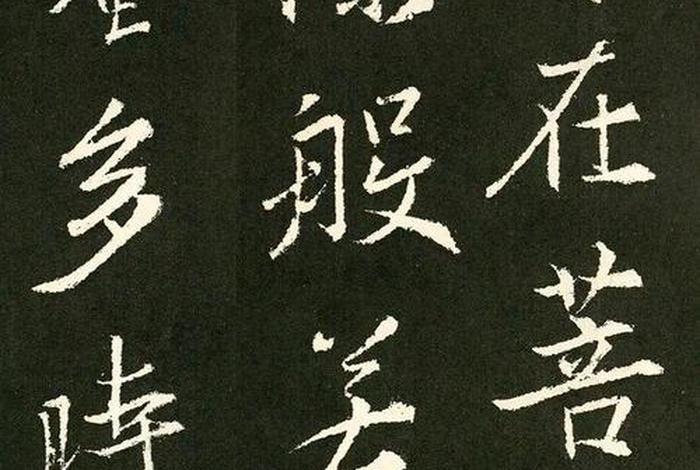 在菩
般若
多時